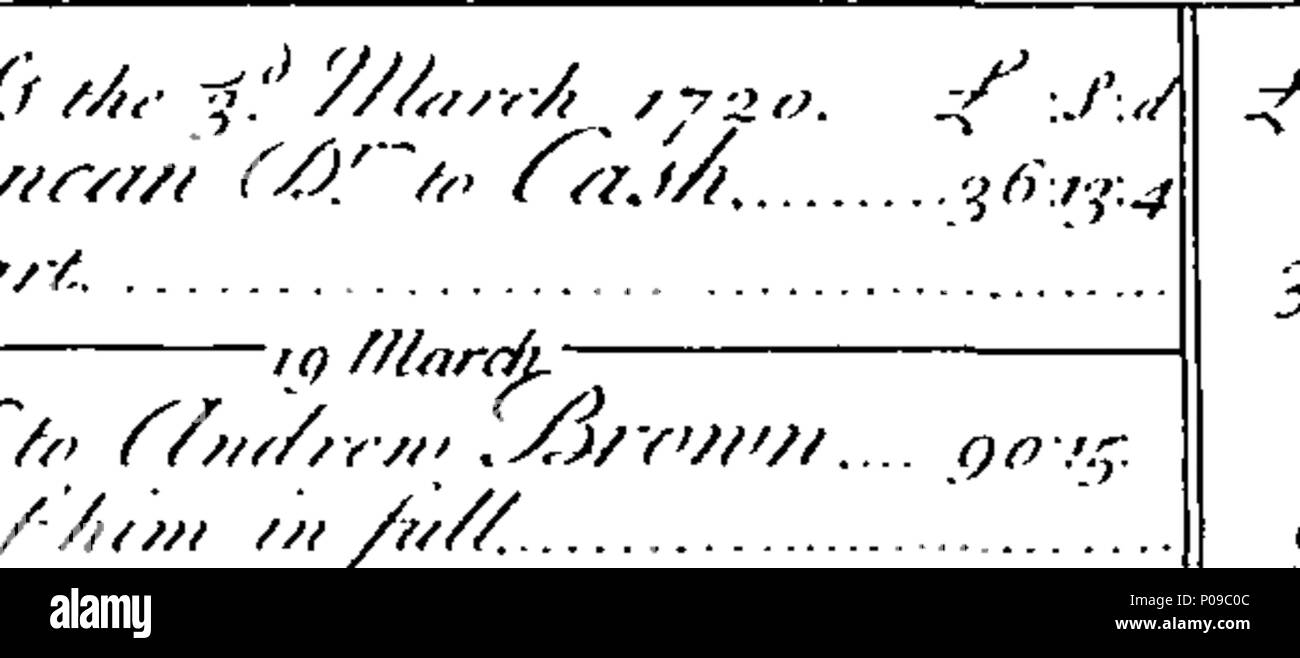 the 3.d March 1720. £ :S:d £
ncan Dr. to Cash.......... 36:13:4
rt. ..............................
19 March
to Andrew Brown.... 90:15.
him in full..............................
alamy
Image ID: P09C0C
www.alamy.com